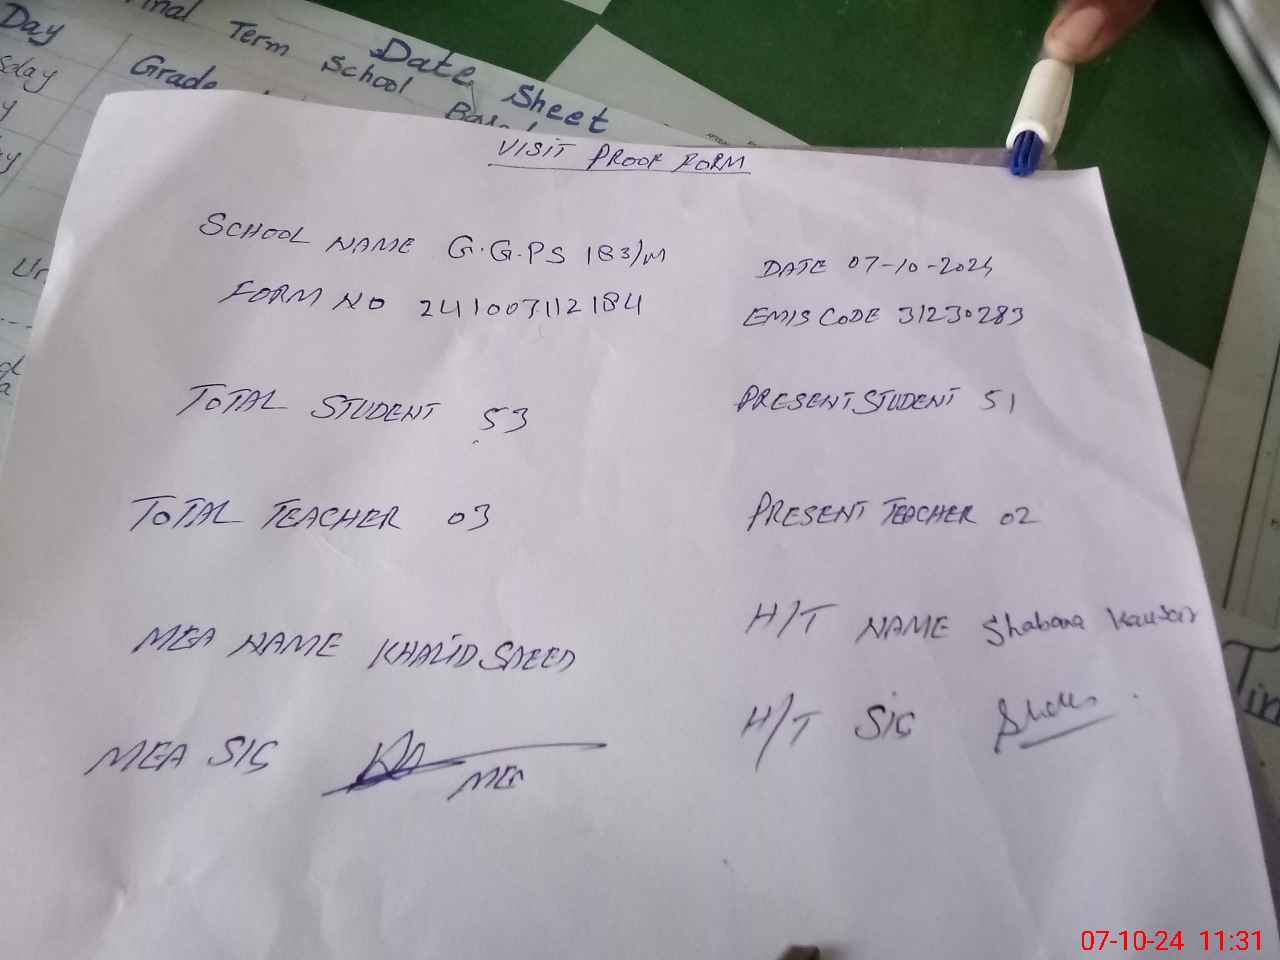 Day
Final Term School Based
Date Sheet
Grade
VISIT PROOF FORM
SCHOOL NAME G.G.PS 183/M
DATE 07-10-2024
FORM NO 241007112184
EMIS CODE 31230283
TOTAL STUDENT 53
PRESENT STUDENT 51
TOTAL TEACHER 03
PRESENT TEACHER 02
MEA NAME KHALID SAEED
H/T NAME Shabana Kausar
MEA SIG
MEA
H/T SIG
07-10-24 11:31